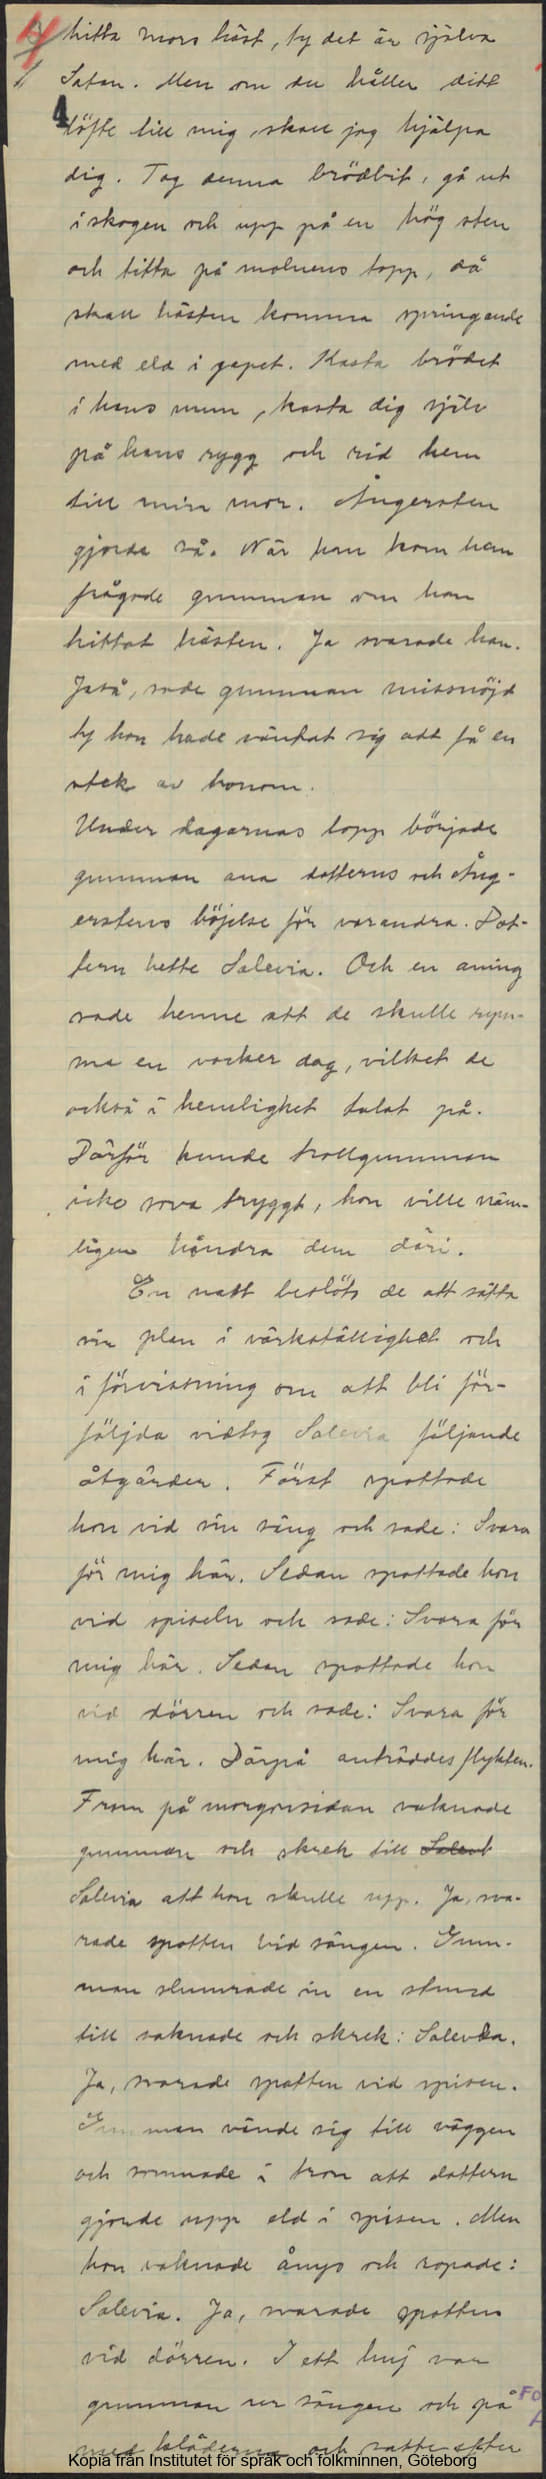 4
hitta mors häst, ty det är själva
Satan. Men om du håller ditt
4
löfte till mig, skall jag hjälpa
dig. Tag denna brödbit, gå ut
i skogen och upp på en hög sten
och titta på molnens topp, då
skall hästen komma springande
med eld i gapet. Kasta brödet
i hans mun, kasta dig själv
på hans rygg och rid hem
till min mor. Ångersten
gjorde så. När han kom hem
frågade gumman om han
hittat hästen. Ja svarade han.
Jaså, sade gumman missnöjd
ty hon hade väntat sig att få en
stek av honom.
Under dagarnas lopp började
gumman ana dotterns och Ång-
erstens böjelse för varandra. Dot-
tern hette Salevia. Och en aning
sade henne att de skulle rym-
ma en vacker dag, vilket de
också i hemlighet talat på.
Därför kunde trollgumman
icke sova tryggt, hon ville näm-
ligen hindra dem däri.
En natt beslöts de att sätta
sin plan i värkställighet och
i förvissning om att bli för-
följda vidtog Salevia följande
åtgärder. Först spottade
hon vid sin säng och sade: Svara
för mig här. Sedan spottade hon
vid spiseln och sade: Svara för
mig här. Sedan spottade hon
vid dörren och sade: Svara för
mig här. Därpå anträddes flykten.
Fram på morgonsidan vaknade
gumman och skrek till
Salevia att hon skulle upp. Ja, sva-
rade spotten vid sängen. Gum-
man slumrade in en stund
till vaknade och skrek: Salevia.
Ja, svarade spotten vid spisen.
Gumman vände sig till väggen
och somnade i tron att dottern
gjorde upp eld i spisen. Men
hon vaknade ånyo och ropade:
Salevia. Ja, svarade spotten
vid dörren. I ett huj var
gumman ur sängen och på
med kläderna och satte efter
Kopia från Institutet för språk och folkminnen, Göteborg